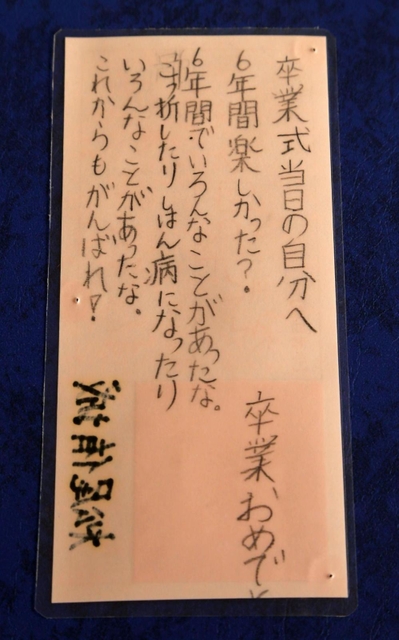 卒業式当日の自分へ
6年間楽しかった?
6年間でいろんなことがあったな。
こっ折したりしはん病になったり
いろんなことがあったな。
これからもがんばれ!
卒業おめでと